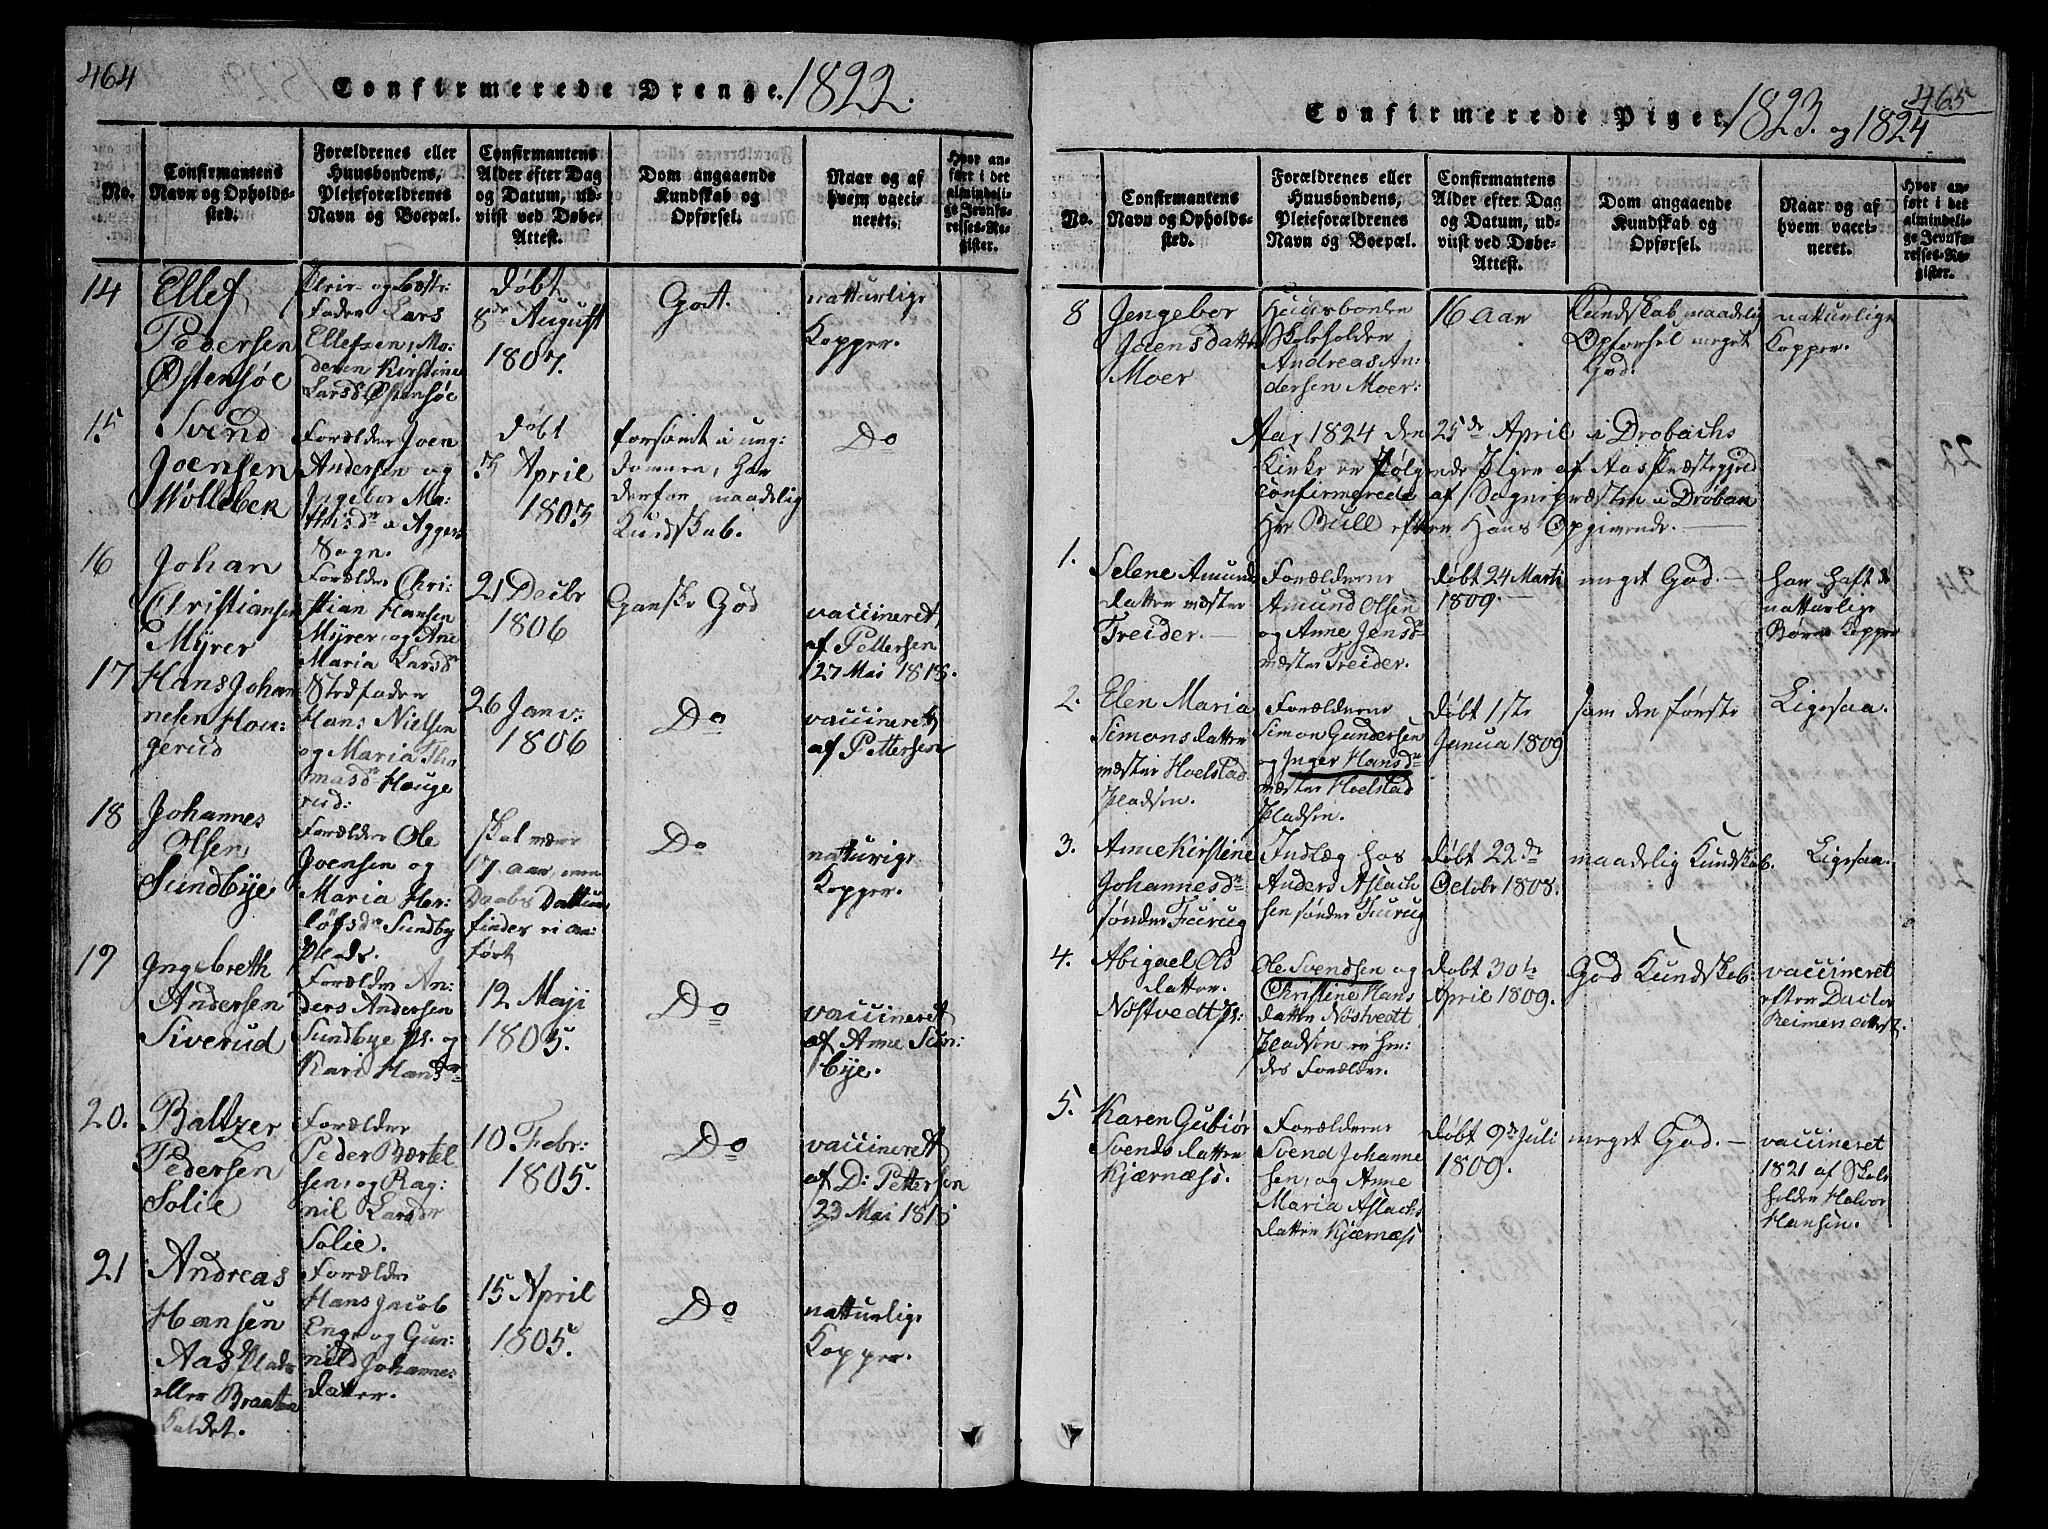 464
Confirmerede Drenge. 1822.
No.
Confirmantens
Navn og Opholds-
sted.
Forældrenes eller
Huusbondens,
Pleieforældrenes
Navn og Boepæl.
Confirmantens
Alder efter Dag
og Datum, ud-
viist ved Døbe-
Attest.
Dom angaaende
Kundskab og
Opførsel.
Naar og af
hvem vacci-
neret.
Hvor an-
ført i det
almindeli-
ge Jevnfø-
relses-Re-
gister.
14
Ellef
Pedersen
Østensøe
Pleie- og Bæste-
fader Lars
Ellefsen, Mo-
deren Kirstine
Larsd Østensøe
Døbt
8de August
1807.
Godt.
natturlige
Kopper.
15
Svend
Joensen
Mölleber
Forælder Joen
Andersen og
Ingebor Ma-
thisdr i Agger
Sogn.
Døbt
April
1803
forsømt i ung-
dommen, har
derfor maadelig
Kundskab.
Do
16
Johan
Christiansen
Myrer
Forælder Chri-
stian Hansen
Myrer og Ane
Maria Larsdr
21 Decbr
1806
Ganske God
vaccineret
af Pettersen
27 Mai 1815.
17
Hans Johan
nesen Hou-
gerud
Stedfader
Han: Nielsen
og Maria Tho
masdr Houge
rud:
26 Janv:
1806
Do
vaccineret
af Pettersen
18
Johannes
Olsen
Sundbye
Forælder Ole
Joensen og
Maria Her-
löfsdr Sundby
Plads.
Skal være
17 aar, men
Daabs Dattum
findes ei an-
ført
Do
naturige
Kopper.
19
Ingebreth
Andersen
Siverud
Forælder An-
ders Andersen
Sundbye Pl. og
Kari Hansdr
12 Maji
1805.
Do
vaccineret
af Anne Sun-
bye.
20.
Baltzer
Pedersen
Solie
Forælder
Peder Bærtel
sen, og Rag-
nil Larsdr
Solie.
10 Febr:
1805.
Do
vaccineret
af D: Pettersen
23 Mai 1815
21
Andreas
Hansen
Aas Plads
eller Braaten
Kaldet.
Forælder
Hans Jacob
Enge og Gun-
nild Johannes
datter.
15 April
1805.
Do
natturlige
Kopper.
465
Confirmerede Piger. 1823. og 1824
No.
Confirmantens
Navn og Opholds-
sted.
Forældrenes eller
Huusbondens,
Pleieforældrenes
Navn og Boepæl.
Confirmantens
Alder efter Dag
og Datum, ud-
viist ved Døbe-
Attest.
Dom angaaende
Kundskab og
Opførsel.
Naar og af
hvem vacci-
neret.
Hvor an-
ført i det
almindeli-
ge Jevnfø-
relses-Re-
gister.
8
Jengebor
Joensdatter
Moer
Huusbonden
Skoleholder
Andreas An-
dersen Moer:
16 Aar
Kundskab maadelig
Opførsel meget
God.
natturlige
Kopper.
Aar 1824 den 25de April i Drobachs
Kirke er følgende Piger af Aas Præstegjeld
confirmerede af Sognepræsten i Drøbac
Hr Bull efter Hans Opgivende.
1.
Selene Amunds
datter næster
Treider.
Forælderne
Amund Olsen
og Anne Jensdr
næster Treider.
Døbt 24 Marti
1809.
meget God.
har haft de
natturlige
Børne Kopper
2.
Elen Maria
Simonsdatter
næster Hoelstad
Pladsen.
Forælderne
Simon Gundersen
og Inger Hansdr
næster Hoelstad
Pladsen.
Døbt 1ste
Janua 1809
som den første
Ligesaa.
3.
Anne Kirstine
Johannesdr
sønder Furug
Indlæg hos
Anders Aslach
sen sønder Furug
Døbt 22de
Octobr 1808.
maadelig Kundskab.
Ligesaa.
4.
Abigael Ols
datter.
Nöstvedt Pl:
Ole Svendsen og
Christine Hans
datter Nöstvedt
Pladsen er hen-
des Forælder.
Døbt 30te
April 1809.
God Kundskab.
vaccineret
efter Docter
Reimers attest.
5.
Karen Gubiör
Svendsdatter
Kjærnæss.
Forælderne
Svend Johanne
sen, og Anne
Maria Aslachs
datter Kjærnæss
Døbt 9de Juli
1809.
meget God.
vaccineret
1821 af Skole
holder Halvor
Hansen.